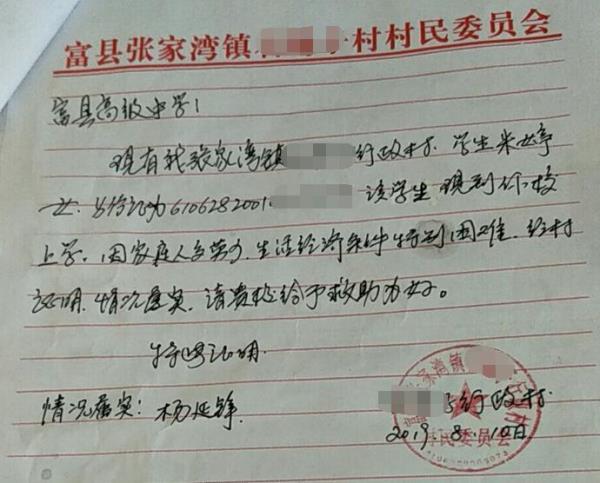 富县张家湾镇 村村民委员会
富县高级中学!
现有我张家湾镇 行政村.学生米 婷
女.身份证为610628200 该学生现到你校
上学.因家庭人多劳少.生活经济条件特别困难.经村
证明.情况属实.请贵校给予救助为好。
特此证明.
情况属实:杨延锋. 行政村.
2019.8.10日.
张家湾镇
村民委员会